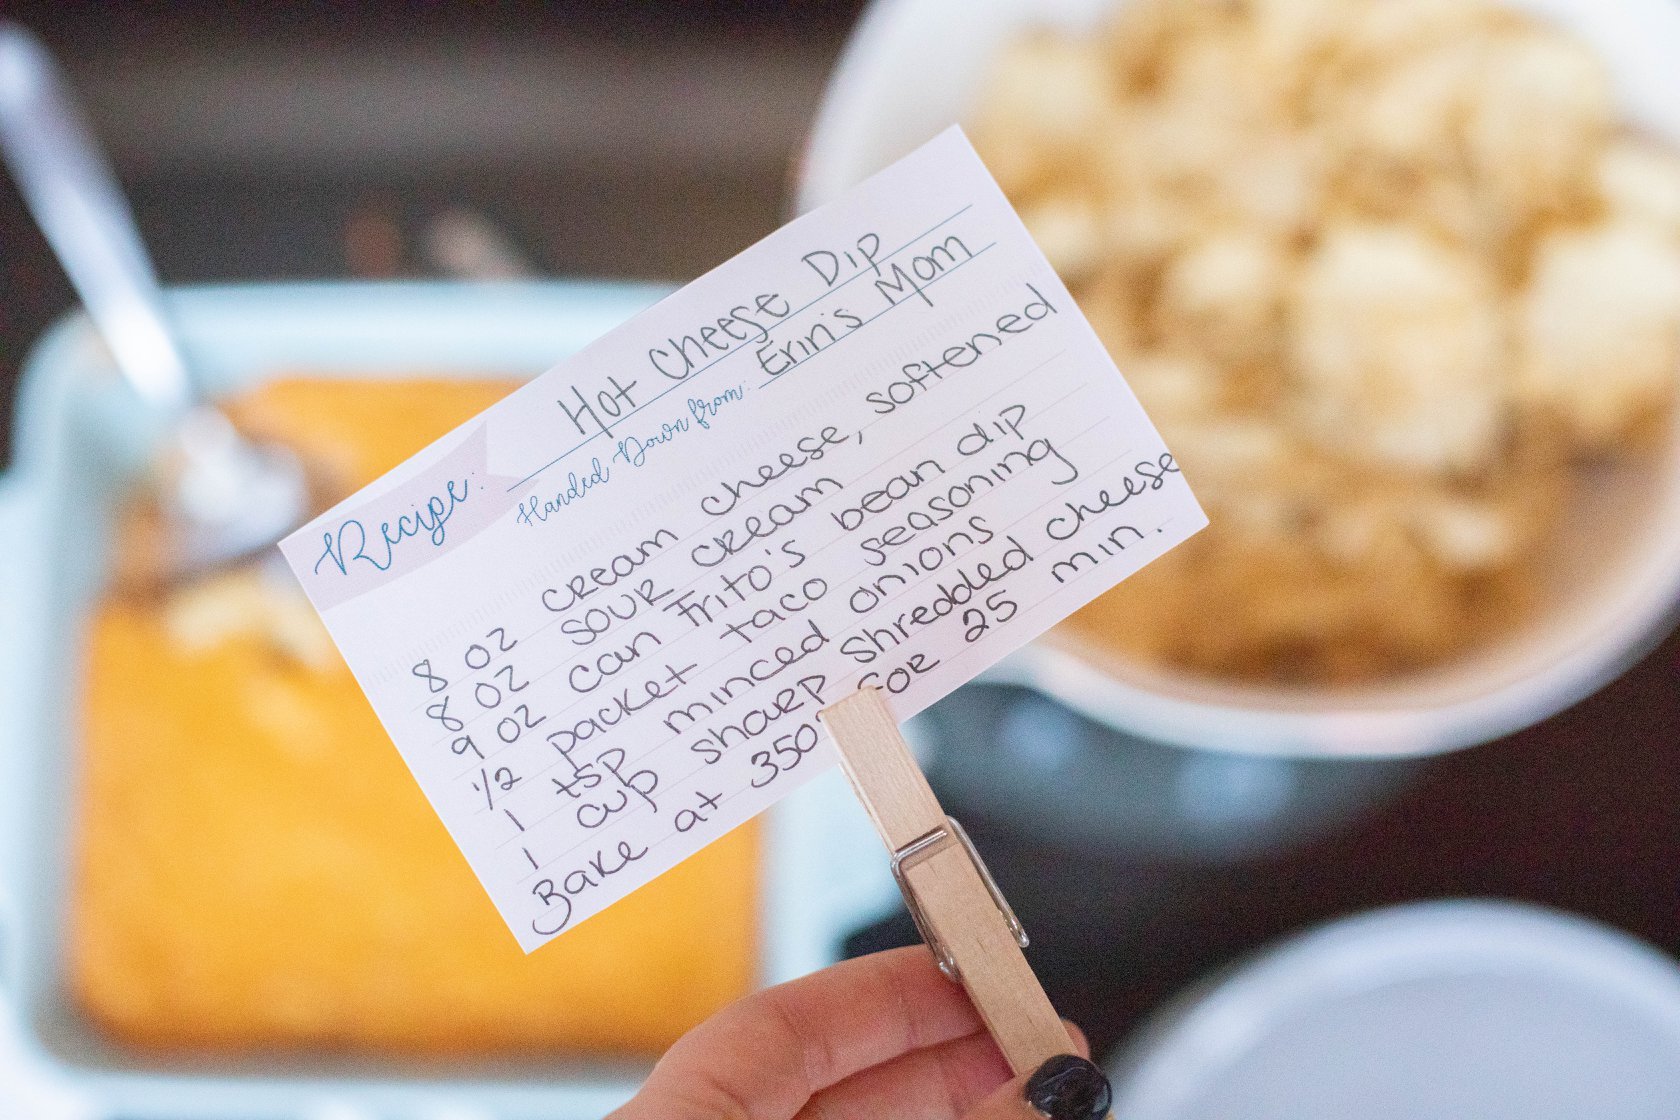 Recipe: Hot Cheese Dip
Handed Down from: Erin's Mom
8 oz cream cheese, softened
8 oz sour cream
9 oz can Frito's bean dip
1/2 packet taco seasoning
1 tsp minced onions
1 cup sharp shredded cheese
Bake at 350° for 25 min.